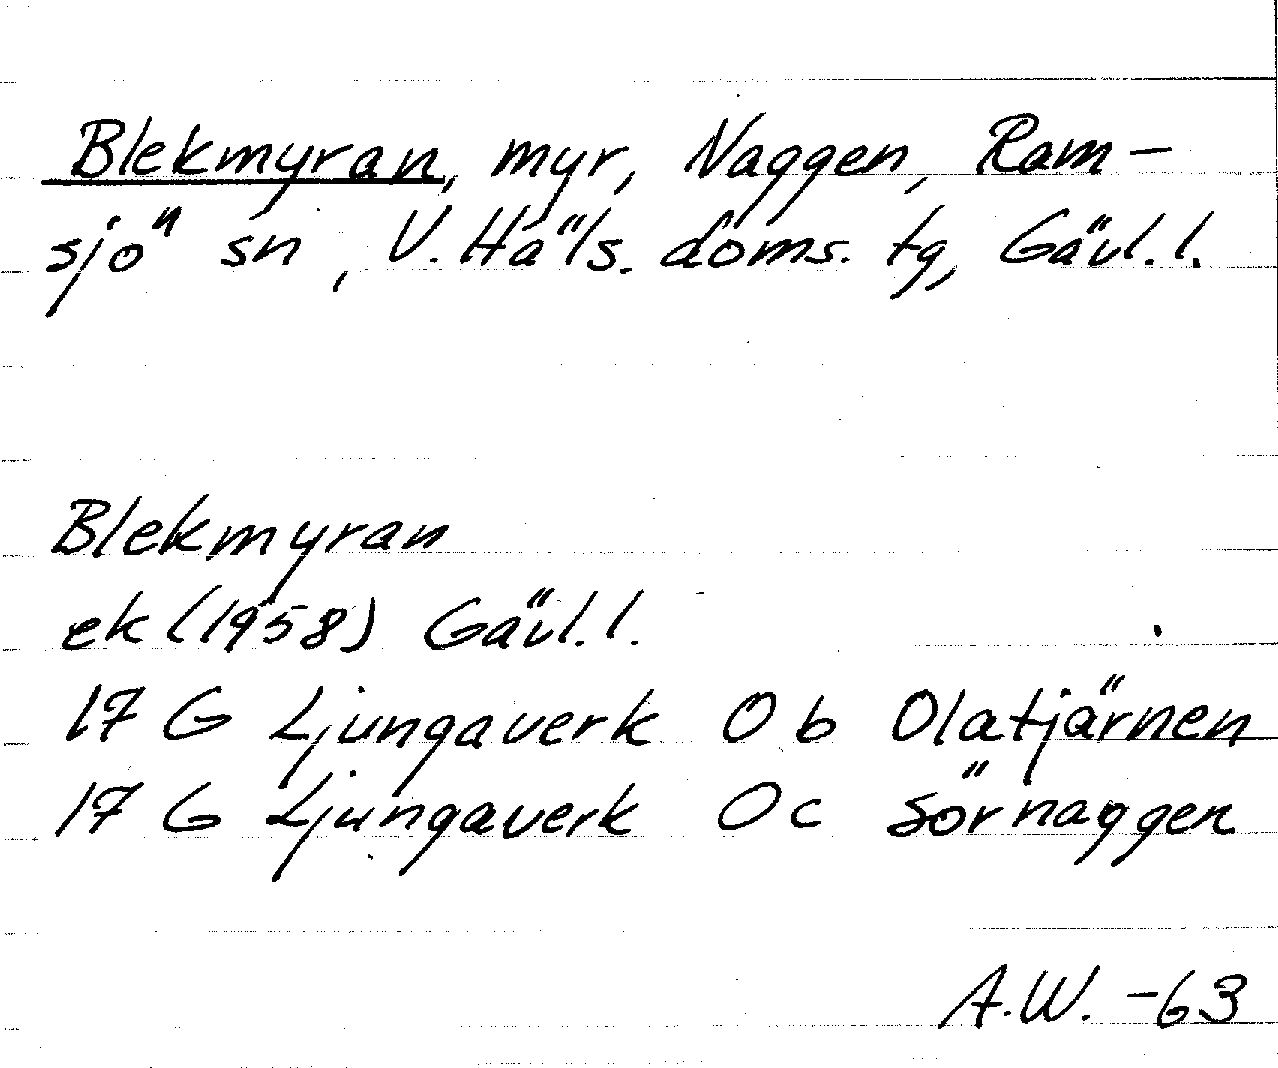 Blekmyran, myr, Naggen, Ram-
sjö sn, V. Häls. doms. tg, Gävl. l.
Blekmyran
ek (1958) Gävl. l.
17 G Ljungaverk 0 b Olatjärnen
17 G Ljungaverk 0 c Sörnaggen
A.W. -63